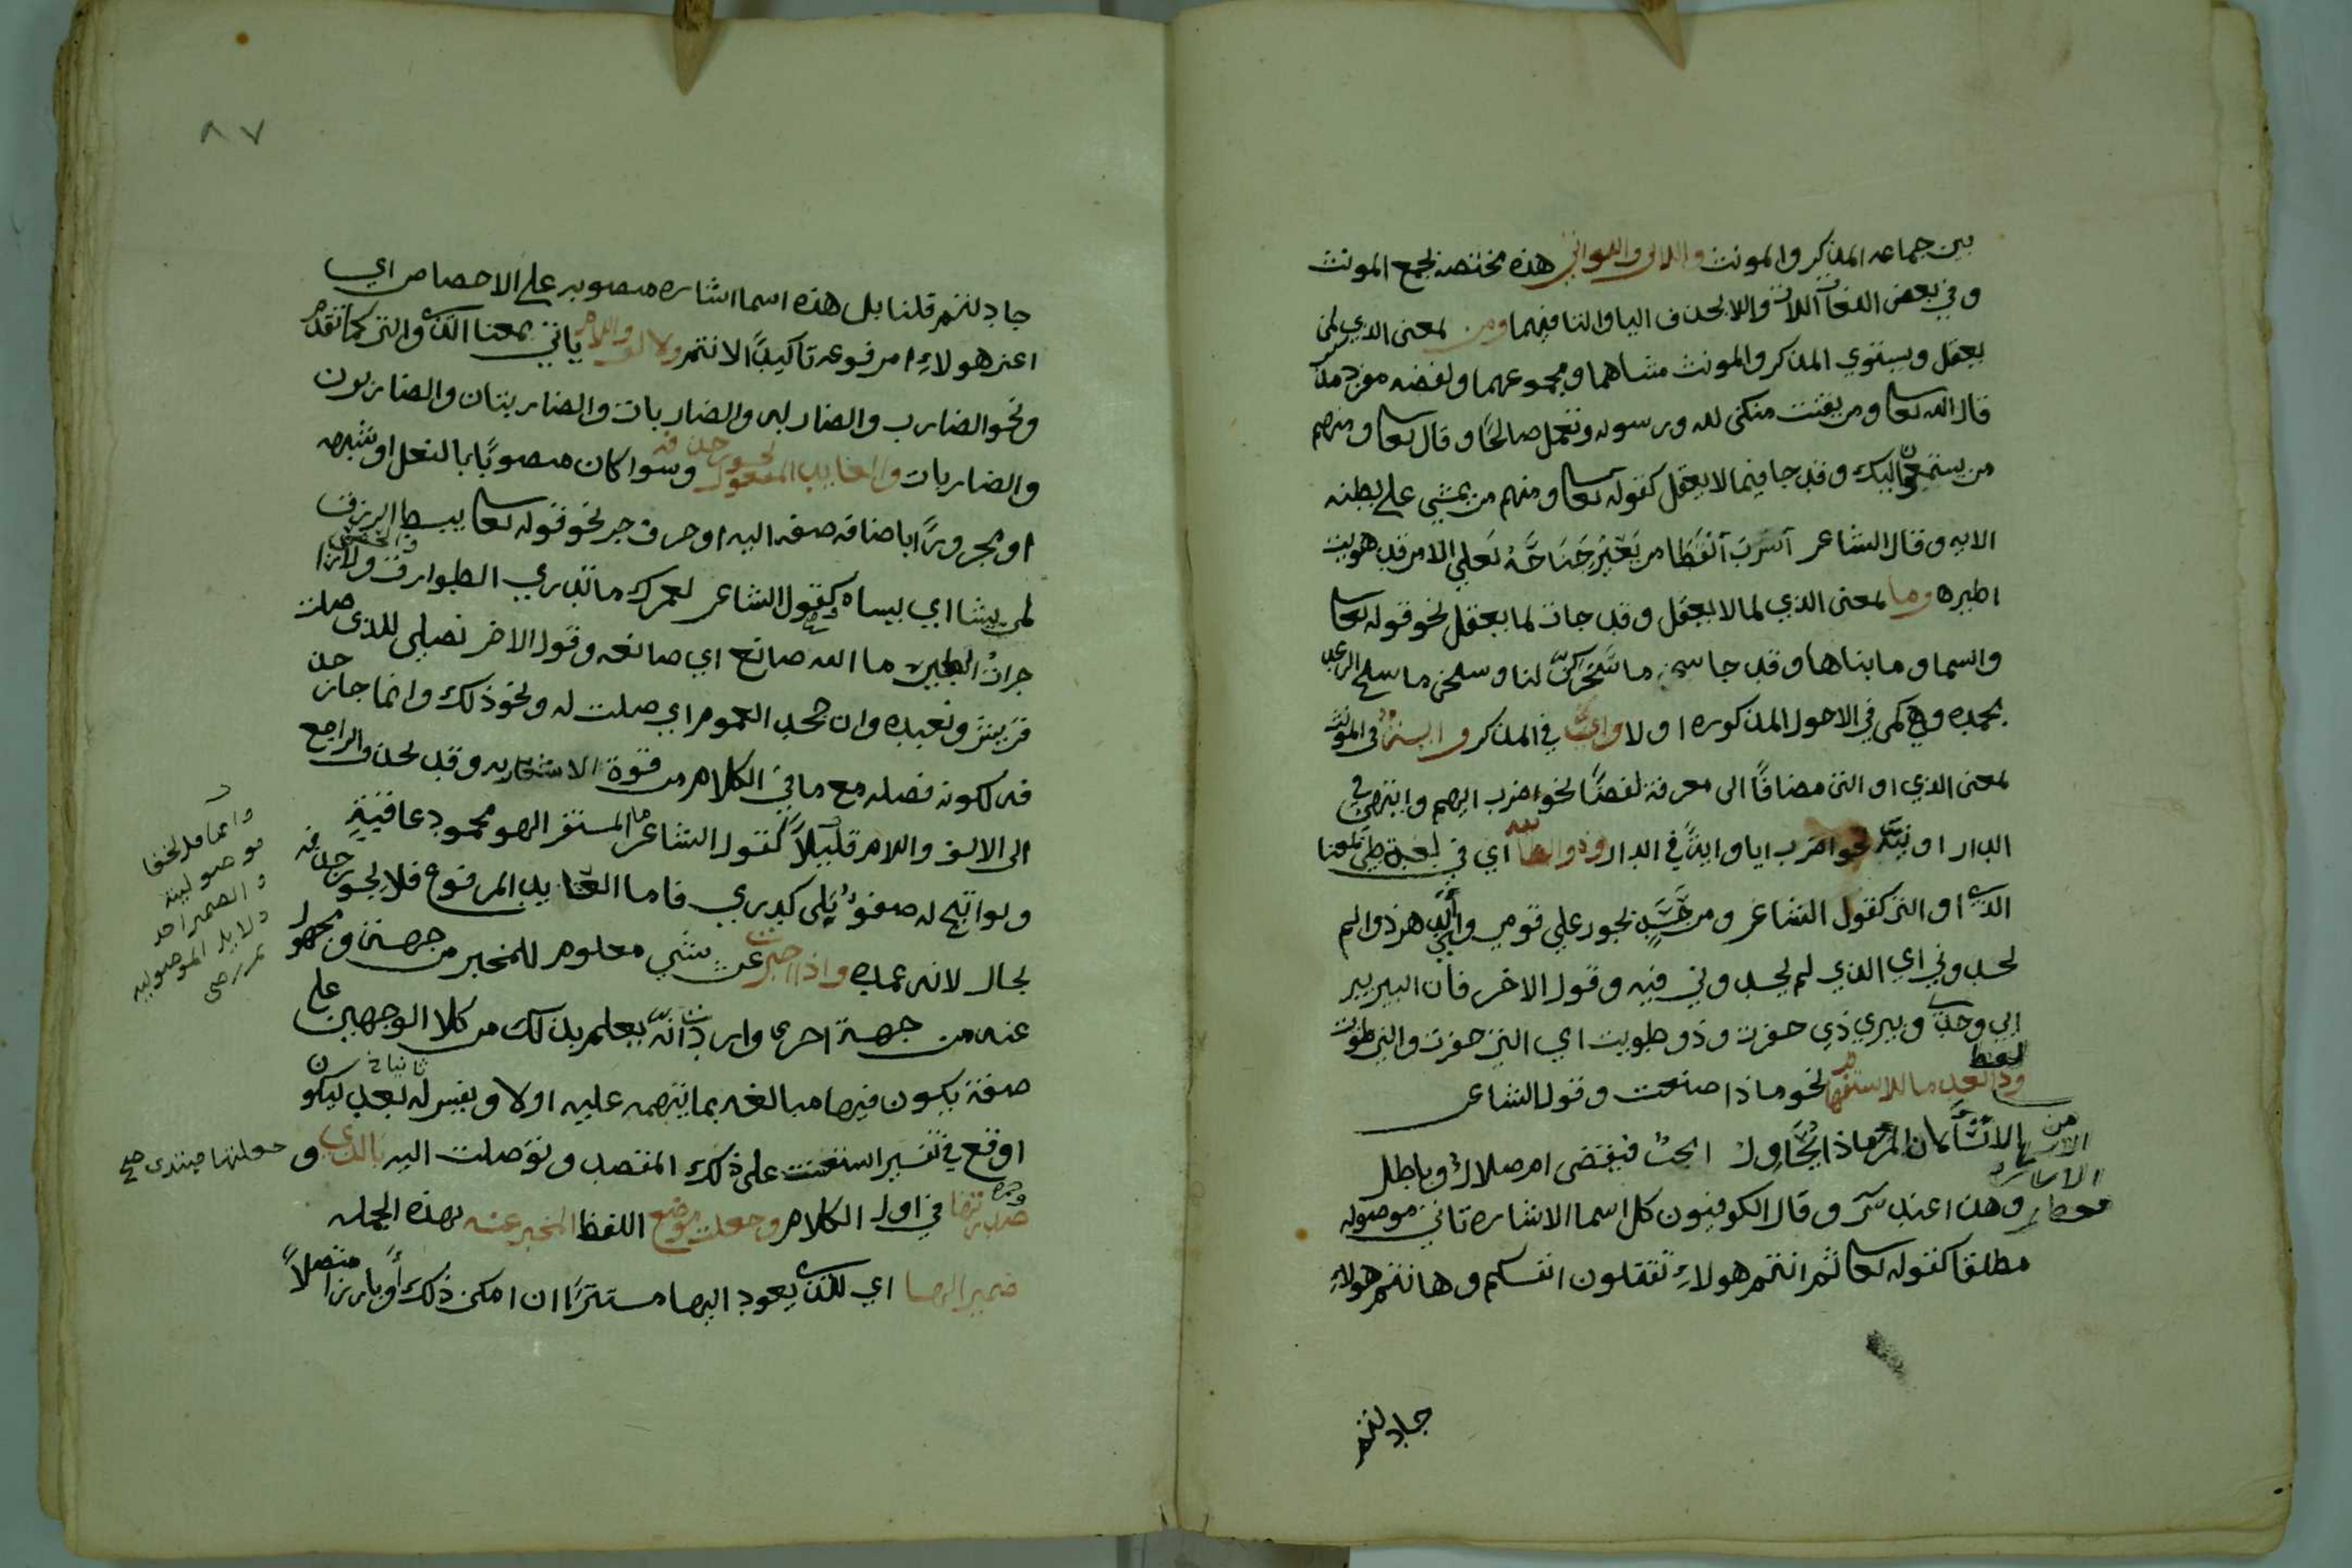 بين جماعه المذكر والمونث واللائي واللواتي هذه مختصه بجمع المونث
وفي بعض اللغات اللات واللا بحذف اليا والتا فيهما ومن بمعنى الذي لمن
يعقل ويستوي المذكر والمونث مثناهما ومجموعهما ولفضه مفرد مذكر
قال الله تعا ومن يقنت منكن لله ورسوله وتعمل صالحًا وقال تعا ومنهم
من يستمعون اليك وقد جا فيما لا يعقل كقوله تعا ومنهم من يمشي على بطنه
الايه وقال الشاعر أسرب القطا من يعير جناحه لعلي الا من قد هويت
اطير وما بمعنى الذي لما لا يعقل وقد جات لما يعقل نحو قوله تعا
والسما وما بناها وقد جا سبحن ما سخركن لنا وسبحن ما سبح الرعد
بحمده وهي كمن في الاحول المذكوره اولا واي في المذكر وايه في المونث
بمعنى الذي او التي مضافًا الى معرفة لفضًا نحو اضرب ايهم وايتهن في
الدار او نيه نحو اضرب ايا واية في الدار وذو الطائيه اي في لغة طي بمعنا
الذي او التي كقول الشاعر ومن حسد يجور علي قومي وأي الدهر ذو لم
يحسدوني اي الذي لم يحسدوني فيه وقول الاخر فان البير بير
ابي وجدي وبيري ذي حفرت وذو طويت اي التي حفرت والتي طويت
وذا بعد ما للاستفهام نحو ماذا صنعت وقول الشاعر
لفظ
الا تسالان المر ماذا يحاول انحب فيقضى ام ضلال وباطل
من
وهذا عند س وقال الكوفيون كل اسما الاشاره تاتي موصوله
مطلقا كقوله تعا ثم انتم هولاء تقتلون انفسكم وها نتم هولاء
جادلتم
٨٧
جادلتم قلنا بل هذه اسما اشاره منصوبه على الاختصاص اي
اعني هولاء او مرفوعه تاكيدًا لانتم والالف واللام ياتي بمعنا الذي والتي كما تقدم
ونحو الضارب والضاربه والضاربات والضاربتان والضاربون
والضاربات والعايد المفعول يجوز حذفه وسوا كان منصوبًا بالفعل او شبهه
او مجرورًا باضافه صفه اليه او حرف جر نحو قوله تعا يبسط الرزق
لمن يشا اي يشاه وكقول الشاعر لعمرك ما تدري الطوارق بالحصى ولا زا
جرات الطير ما الله صانع اي صانعه وقول الاخر نصلي للذي صلت
قريش ونعبده وان جحد العموم اي صلت له ونحو ذلك وانما جاز حذ
فه لكونه فضله مع ما في الكلام من قوة الاشعار به وقد يحذف الراجع
الى الالف واللام قليلًا كقول الشاعر ما المستفز الهوى محمود عاقبةٍ
ولو اتيح له صفو بلا كدر فاما العايد المرفوع فلا يجوز حذفه
بحال لانه عمده واذا اخبرت عن شي معلوم للمخبر من جهة ومجهول
عنه من جهة اخرى واردت انه يعلم بذلك من كلا الوجهين على
صفة يكون فيها مبالغه بما يتهمه عليه اولا ويفسر له بعد ثانيا ليكون
اوقع في نفسه استعنت على ذلك المقصد وتوصلت اليه بالذي و جعلتها مبتدى صح
صدرتها في اول الكلام وجعلت موضع اللفظ المخبر عنه بهذه الجمله
ضميرا لها اي للذي يعود اليها مستترًا ان امكن ذلك أو بارزا متصلًا